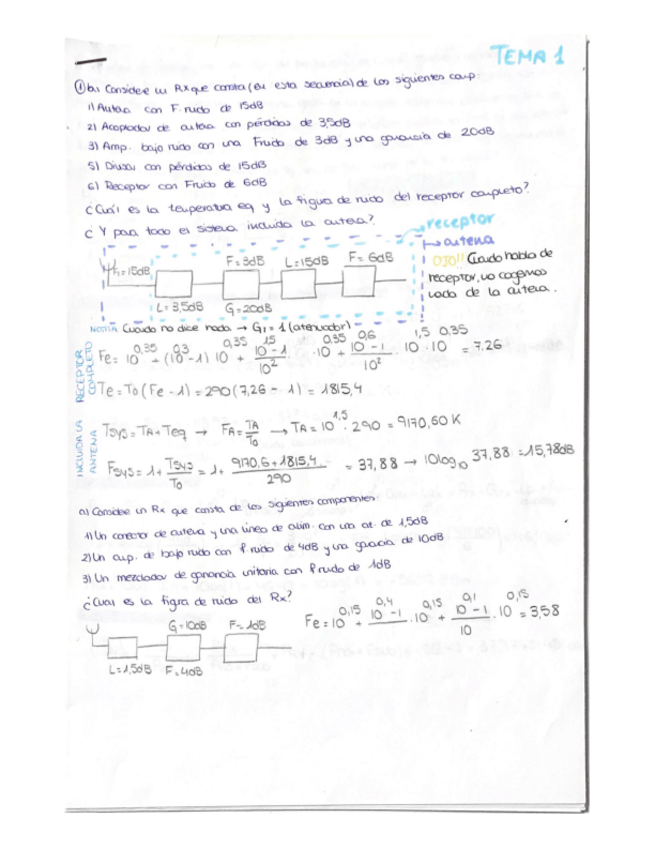 TEMA 1
① b) Considere un Rx que consta (en esta secuencia) de los siguientes comp.
1) Antena con F. ruido de 15dB
2) Acoplador de antena con pérdidas de 3,5dB
3) Amp. bajo ruido con una Fruido de 3dB y una ganancia de 20dB
5) Divisor con pérdidas de 15dB
6) Receptor con Fruido de 6dB
¿Cuál es la temperatura eq y la figura de ruido del receptor completo?
¿Y para todo el sistema incluida la antena?
receptor
antena
F=15dB F=3dB L=15dB F=6dB
OJO!! Cuando habla de
receptor, no cogemos
nada de la antena.
L=3,5dB G=20dB
NOTA Cuando no dice nada → G1 = 1 (atenuador)
RECEPTOR COMPLETO
Fe = 10^0,35 + (10^0,3 - 1) 10^0,35 + (10^1,5 - 1)/10^2 · 10^0,35 + (10^0,6 - 1)/10^2 · 10^1,5 · 10^0,35 = 7.26
Te = T0 (Fe - 1) = 290 (7,26 - 1) = 1815,4
INCLUIDA LA ANTENA
Tsys = TA + Teq → FA = TA/T0 → TA = 10^1,5 · 290 = 9170,60 K
Fsys = 1 + Tsys/T0 = 1 + (9170,6 + 1815,4)/290 = 37,88 → 10log10 37,88 = 15,78dB
a) Considere un Rx que consta de los siguientes componentes:
1) Un conector de antena y una línea de alim. con una at. de 1,5dB
2) Un amp. de bajo ruido con f. ruido de 4dB y una ganacia de 10dB
3) Un mezclador de ganancia unitaria con f ruido de 1dB
¿Cual es la figra de ruido del Rx?
G=10dB F=1dB
Fe = 10^0,15 + (10^0,4 - 1) · 10^0,15 + (10^0,1 - 1)/10 · 10^0,15 = 3,58
L=1,5dB F=4dB